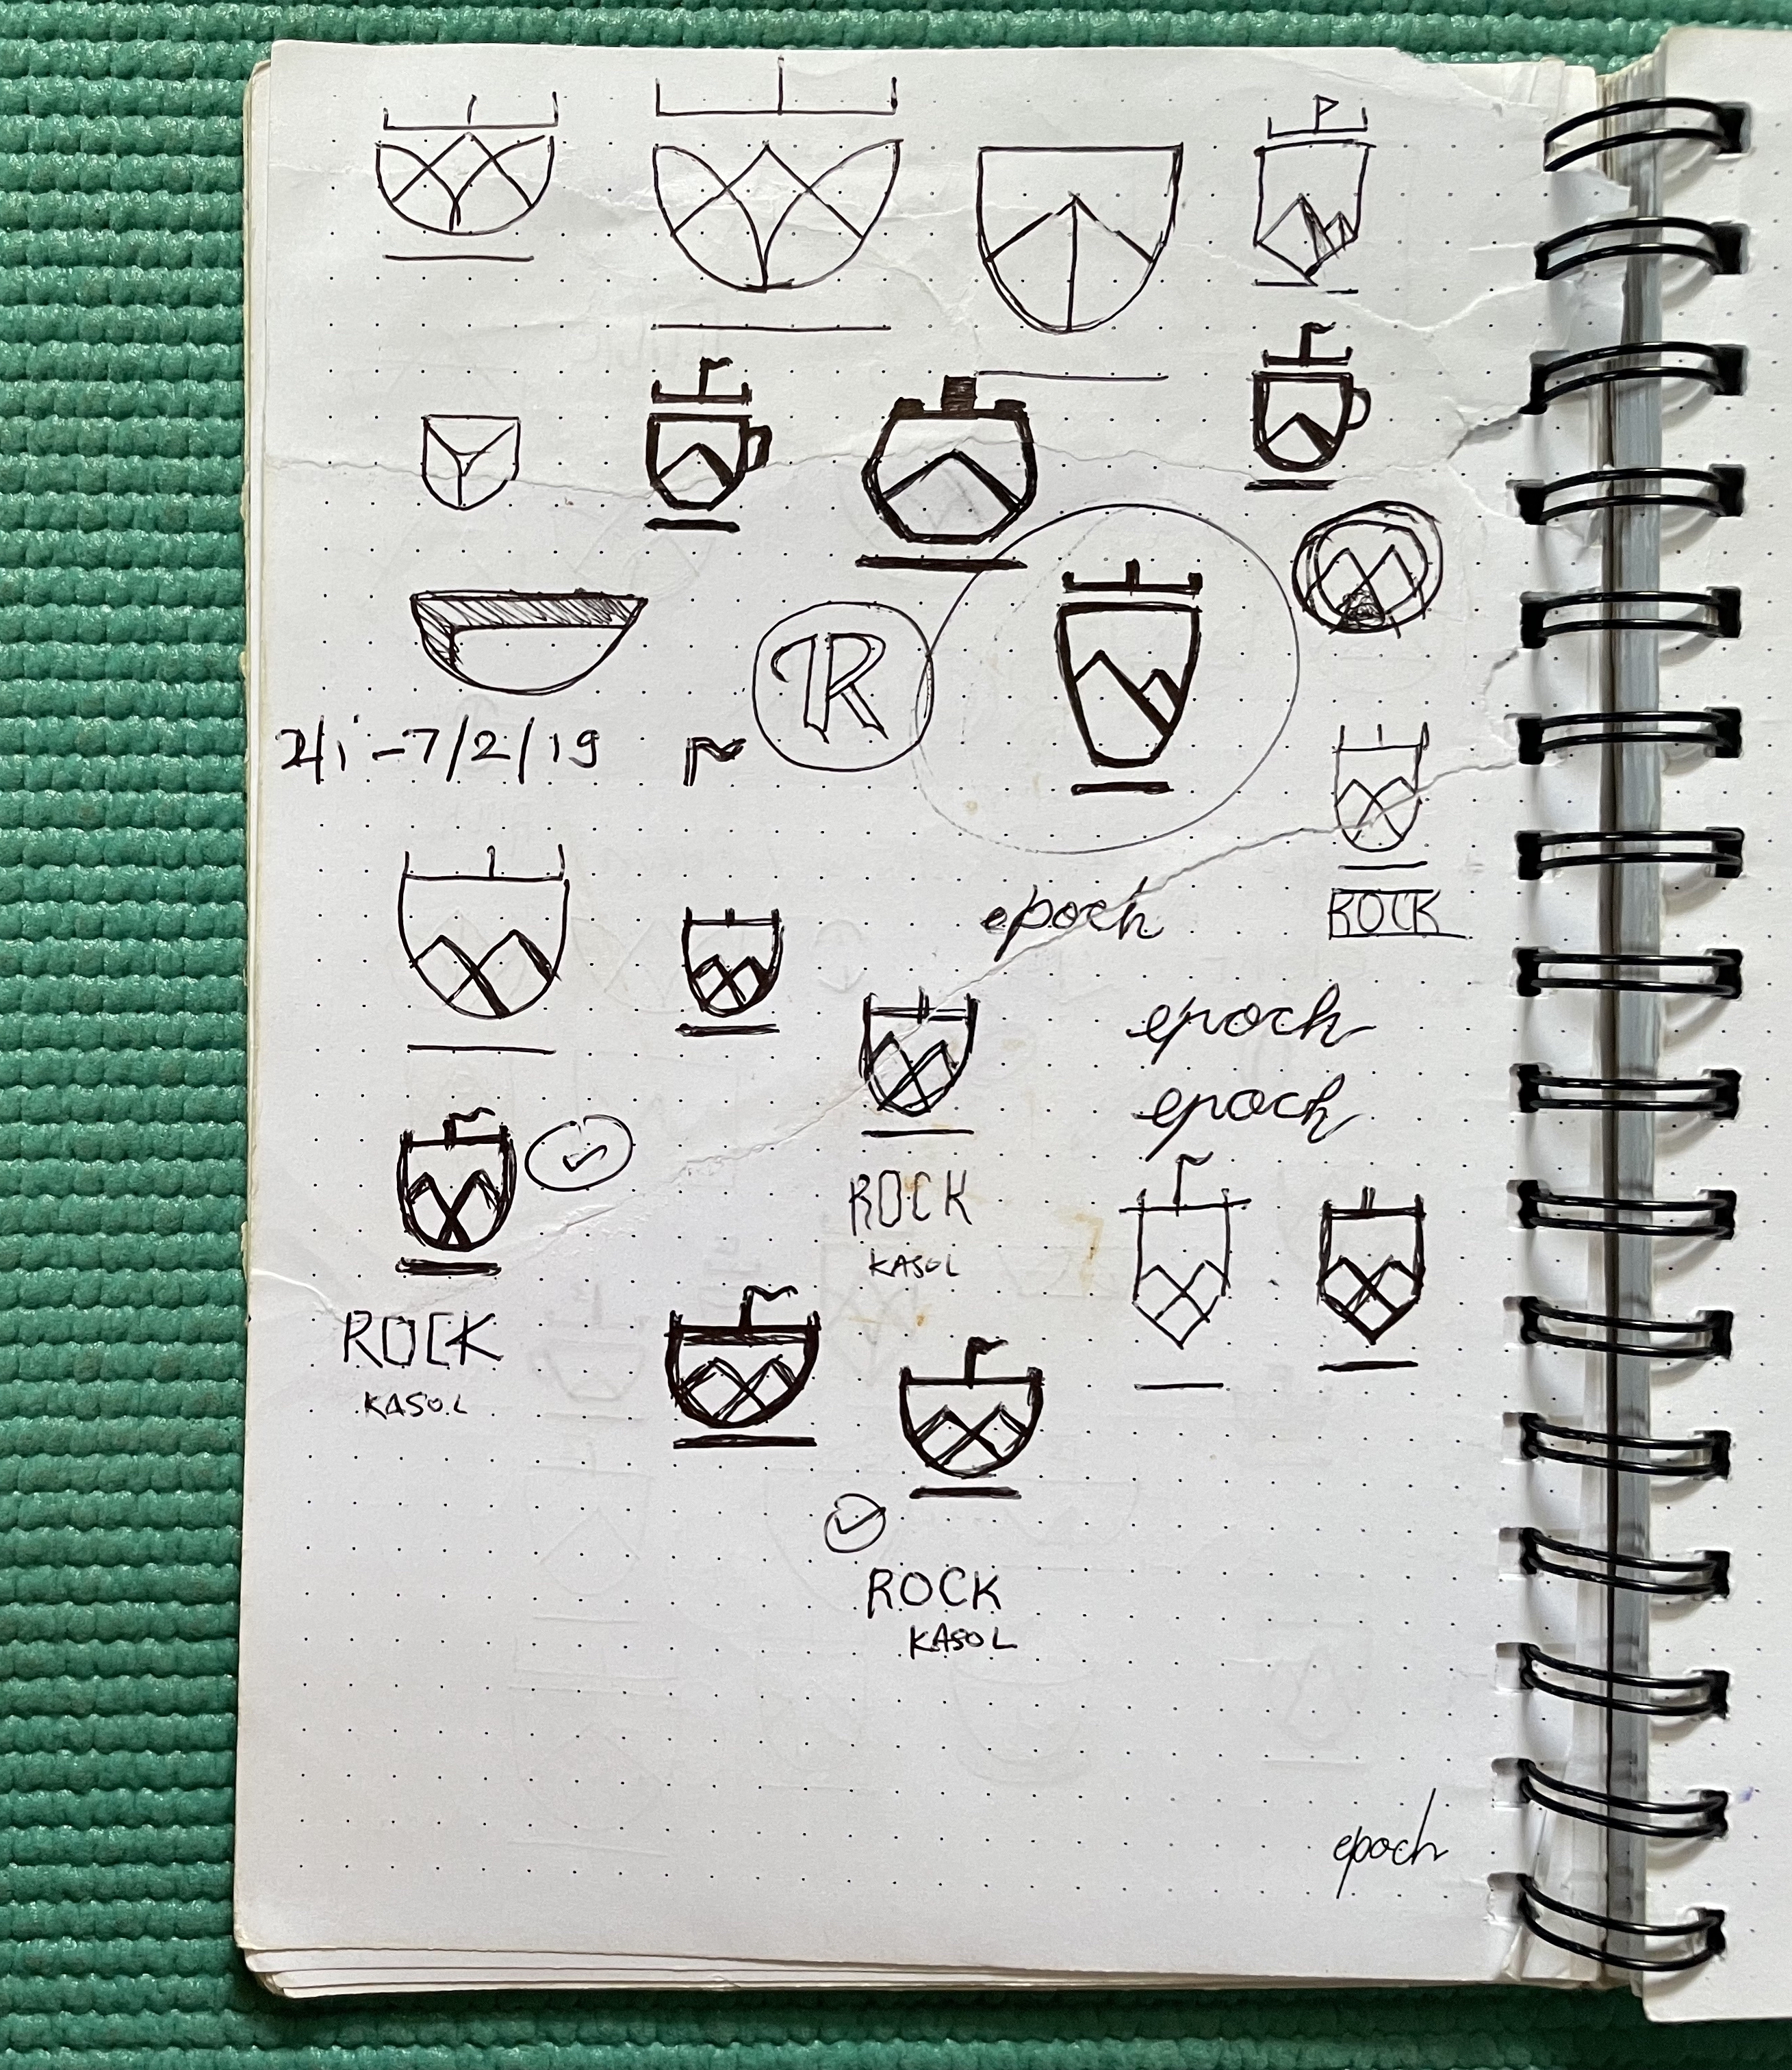 R
7/2/19
epoch
ROCK
epoch
epoch
ROCK
KASOL
ROCK
KASOL
ROCK
KASOL
epoch